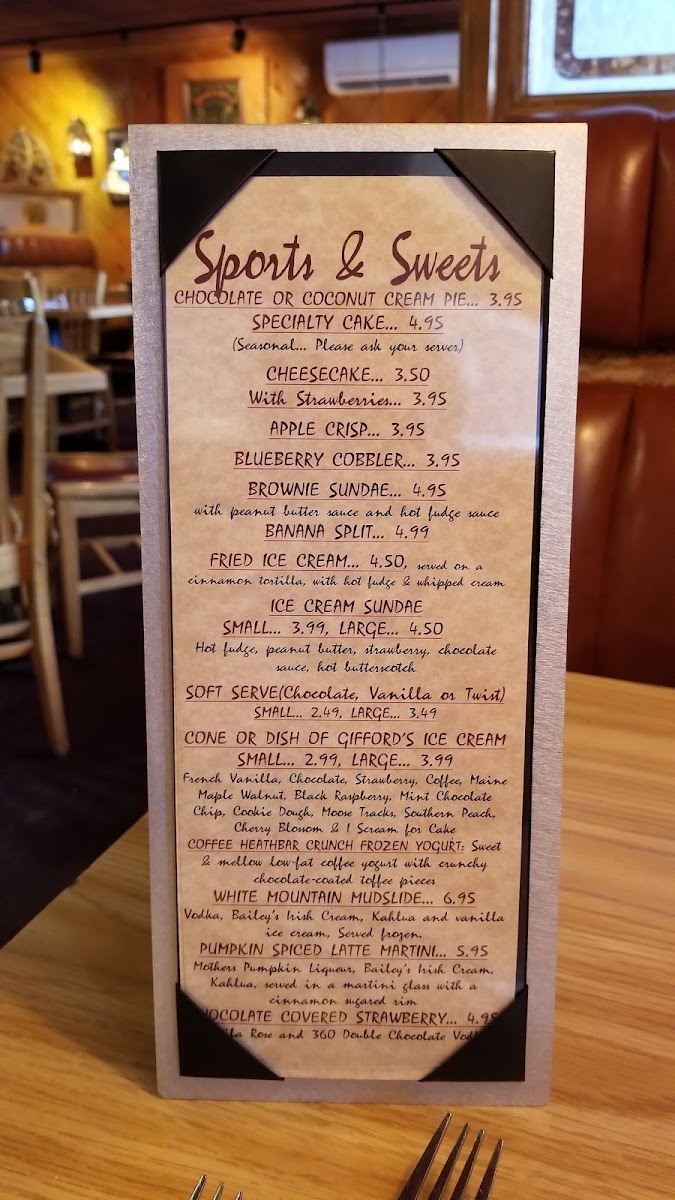 Sports & Sweets
CHOCOLATE OR COCONUT CREAM PIE... 3.95
SPECIALTY CAKE... 4.95
(Seasonal... Please ask your server)
CHEESECAKE... 3.50
With Strawberries... 3.95
APPLE CRISP... 3.95
BLUEBERRY COBBLER... 3.95
BROWNIE SUNDAE... 4.95
with peanut butter sauce and hot fudge sauce
BANANA SPLIT... 4.99
FRIED ICE CREAM... 4.50, served on a
cinnamon tortilla, with hot fudge & whipped cream
ICE CREAM SUNDAE
SMALL... 3.99, LARGE... 4.50
Hot fudge, peanut butter, strawberry, chocolate
sauce, hot butterscotch
SOFT SERVE(Chocolate, Vanilla or Twist)
SMALL... 2.49, LARGE... 3.49
CONE OR DISH OF GIFFORD'S ICE CREAM
SMALL... 2.99, LARGE... 3.99
French Vanilla, Chocolate, Strawberry, Coffee, Maine
Maple Walnut, Black Raspberry, Mint Chocolate
Chip, Cookie Dough, Moose Tracks, Southern Peach,
Cherry Blossom & I Scream for Cake
COFFEE HEATHBAR CRUNCH FROZEN YOGURT: Sweet
& mellow low-fat coffee yogurt with crunchy
chocolate-coated toffee pieces
WHITE MOUNTAIN MUDSLIDE... 6.95
Vodka, Bailey's Irish Cream, Kahlua and vanilla
ice cream, Served frozen.
PUMPKIN SPICED LATTE MARTINI... 5.95
Mothers Pumpkin Liqueur, Bailey's Irish Cream,
Kahlua, served in a martini glass with a
cinnamon sugared rim
HOCOLATE COVERED STRAWBERRY... 4.95
ila Rose and 360 Double Chocolate Vod